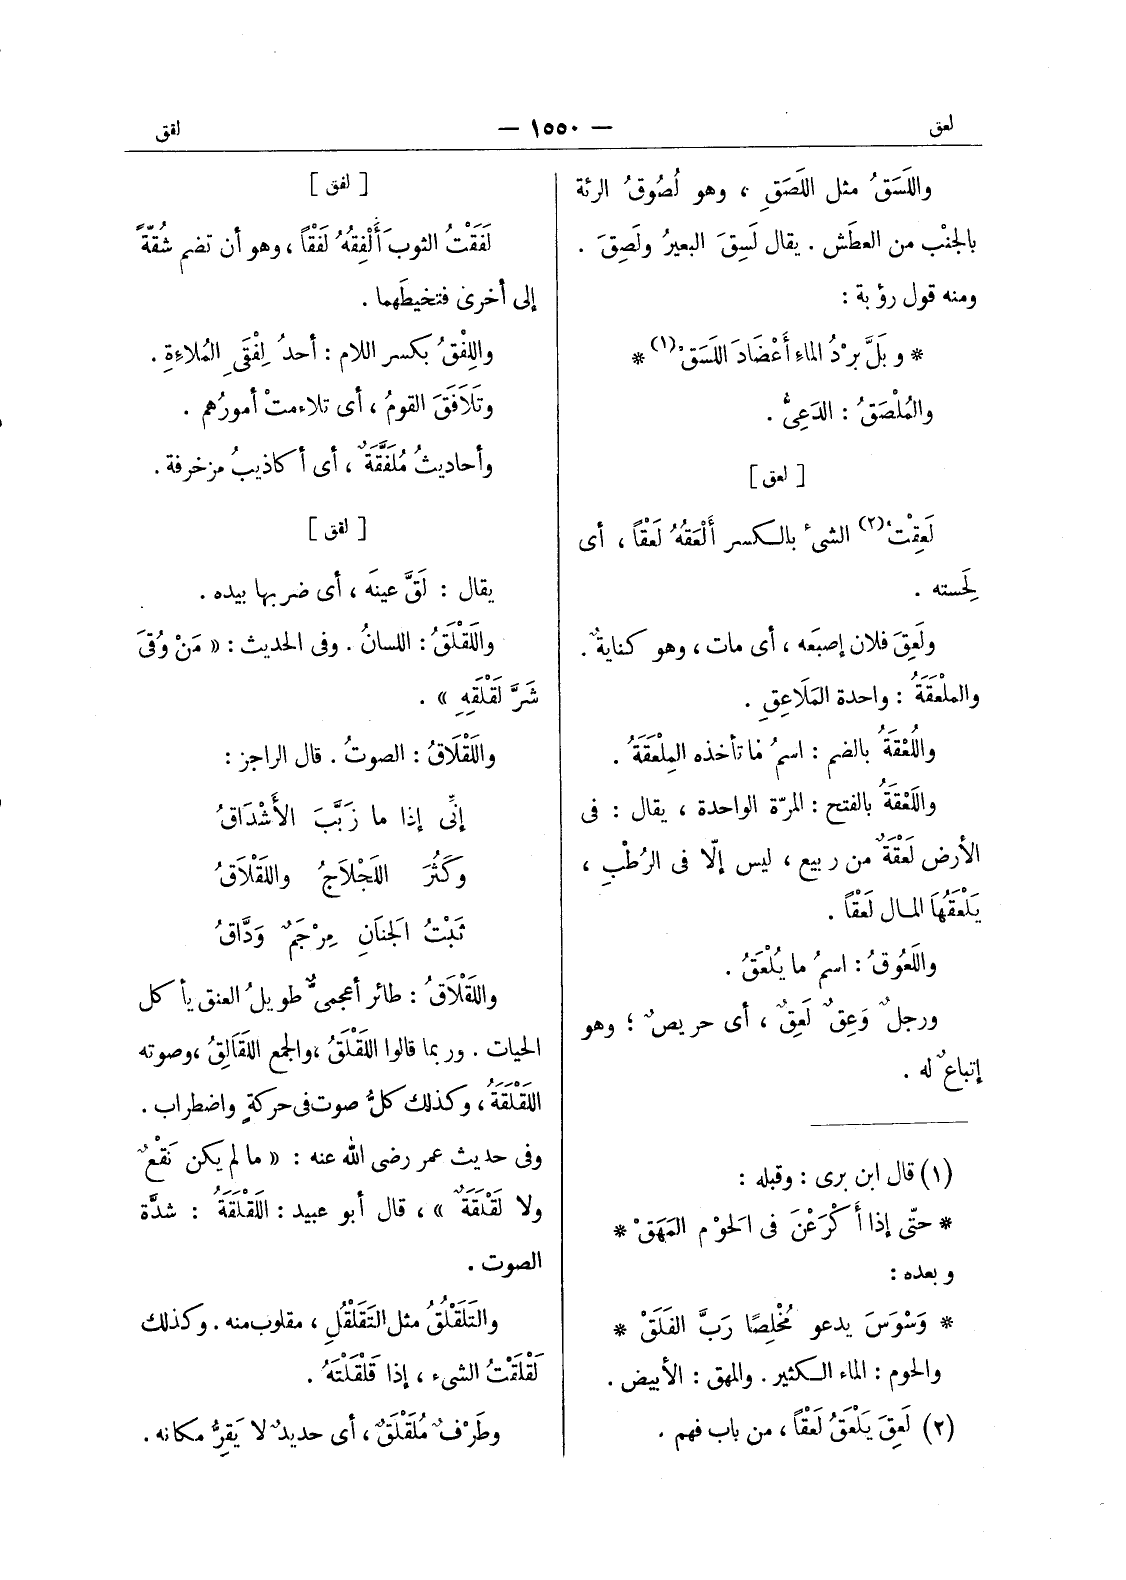 لعق
— ١٥٥٠ —
لقق
واللَسَقُ مثل اللَصَقِ ، وهو لُصُوقُ الرئة
بالجنْب من العطَش . يقال لَسِقَ البعيرُ ولَصِقَ .
ومنه قول رؤبة :
* وبَلَّ بَرْدُ الماءِ أَعْضَادَ اللَسَقْ(١) *
والمُلْصَقُ : الدَعِىُّ .
[ لعق ]
لَعِقْتُ(٢) الشىءَ بالكسر أَلْعَقُهُ لَعْقاً ، أى
لَحِسته .
ولَعِقَ فلان إصبَعَه ، أى مات ، وهو كنايةٌ .
والمِلْعَقَةُ : واحدة المَلَاعِقِ .
واللُعْقَةُ بالضم : اسمُ ما تأخذه المِلْعَقَةُ .
واللَعْقَةُ بالفتح : المرّة الواحدة ، يقال : فى
الأرض لَعْقَةٌ من ربيع ، ليس إلّا فى الرُطْبِ ،
يَلْعَقُهَا المال لَعْقاً .
واللَعُوقُ : اسمُ ما يُلْعَقُ .
ورجلٌ وَعِقٌ لَعِقٌ ، أى حريصٌ ؛ وهو
إتباعٌ له .
(١) قال ابن برى : وقبله :
* حتّى إذا أَكْرَعْنَ فى الحَوْم المَهَقْ *
وبعده :
* وَسْوَسَ يدعو مُخْلِصًا رَبَّ الفَلَقْ *
والحوم : الماء الكثير . والمهق : الأبيض .
(٢) لَعِقَ يَلْعَقُ لَعْقاً ، من باب فهم .
[ لفق ]
لَفَقْتُ الثوبَ أَلْفِقُهُ لَفْقاً ، وهو أن تضم شُقّةً
إلى أخرى فتخيطَهما .
واللِفْقُ بكسر اللام : أحدُ لِفْقَىِ المُلاءةِ .
وتَلَافَقَ القومُ ، أى تلاءمتْ أمورُهم .
وأحاديثُ مُلَفَّقَةٌ ، أى أكاذيبُ مزخرفة .
[ لقق ]
يقال : لَقَّ عينَه ، أى ضربها بيده .
واللَقْلَقُ : اللسانُ . وفى الحديث : « مَنْ وُقِىَ
شَرَّ لَقْلَقِهِ » .
واللَقْلَاقُ : الصوتُ . قال الراجز :
إنِّى إذا ما زَبَّبَ الأَشْدَاقُ
وكَثُرَ اللَجْلَاجُ واللَقْلَاقُ
ثَبْتُ الجَنَانِ مِرْجَمٌ وَدَّاقُ
واللَقْلَاقُ : طائر أعجمىٌّ طويلُ العنق يأكل
الحيات . وربما قالوا اللَقْلَقُ ، والجمع اللَقَالِقُ ، وصوته
اللَقْلَقَةُ ، وكذلك كلُّ صوت فى حركةٍ واضطراب .
وفى حديث عمر رضى الله عنه : « ما لم يكن نَقْعٌ
ولا لَقْلَقَةٌ » ، قال أبو عبيد : اللَقْلَقَةُ : شدَّة
الصوت .
والتَلَقْلُقُ مثل التَقَلْقُلِ ، مقلوب منه . وكذلك
لَقْلَقْتُ الشىء ، إذا قَلْقَلْتَهُ .
وطَرْفٌ مُلَقْلَقٌ ، أى حديدٌ لا يَقِرُّ مكانه .